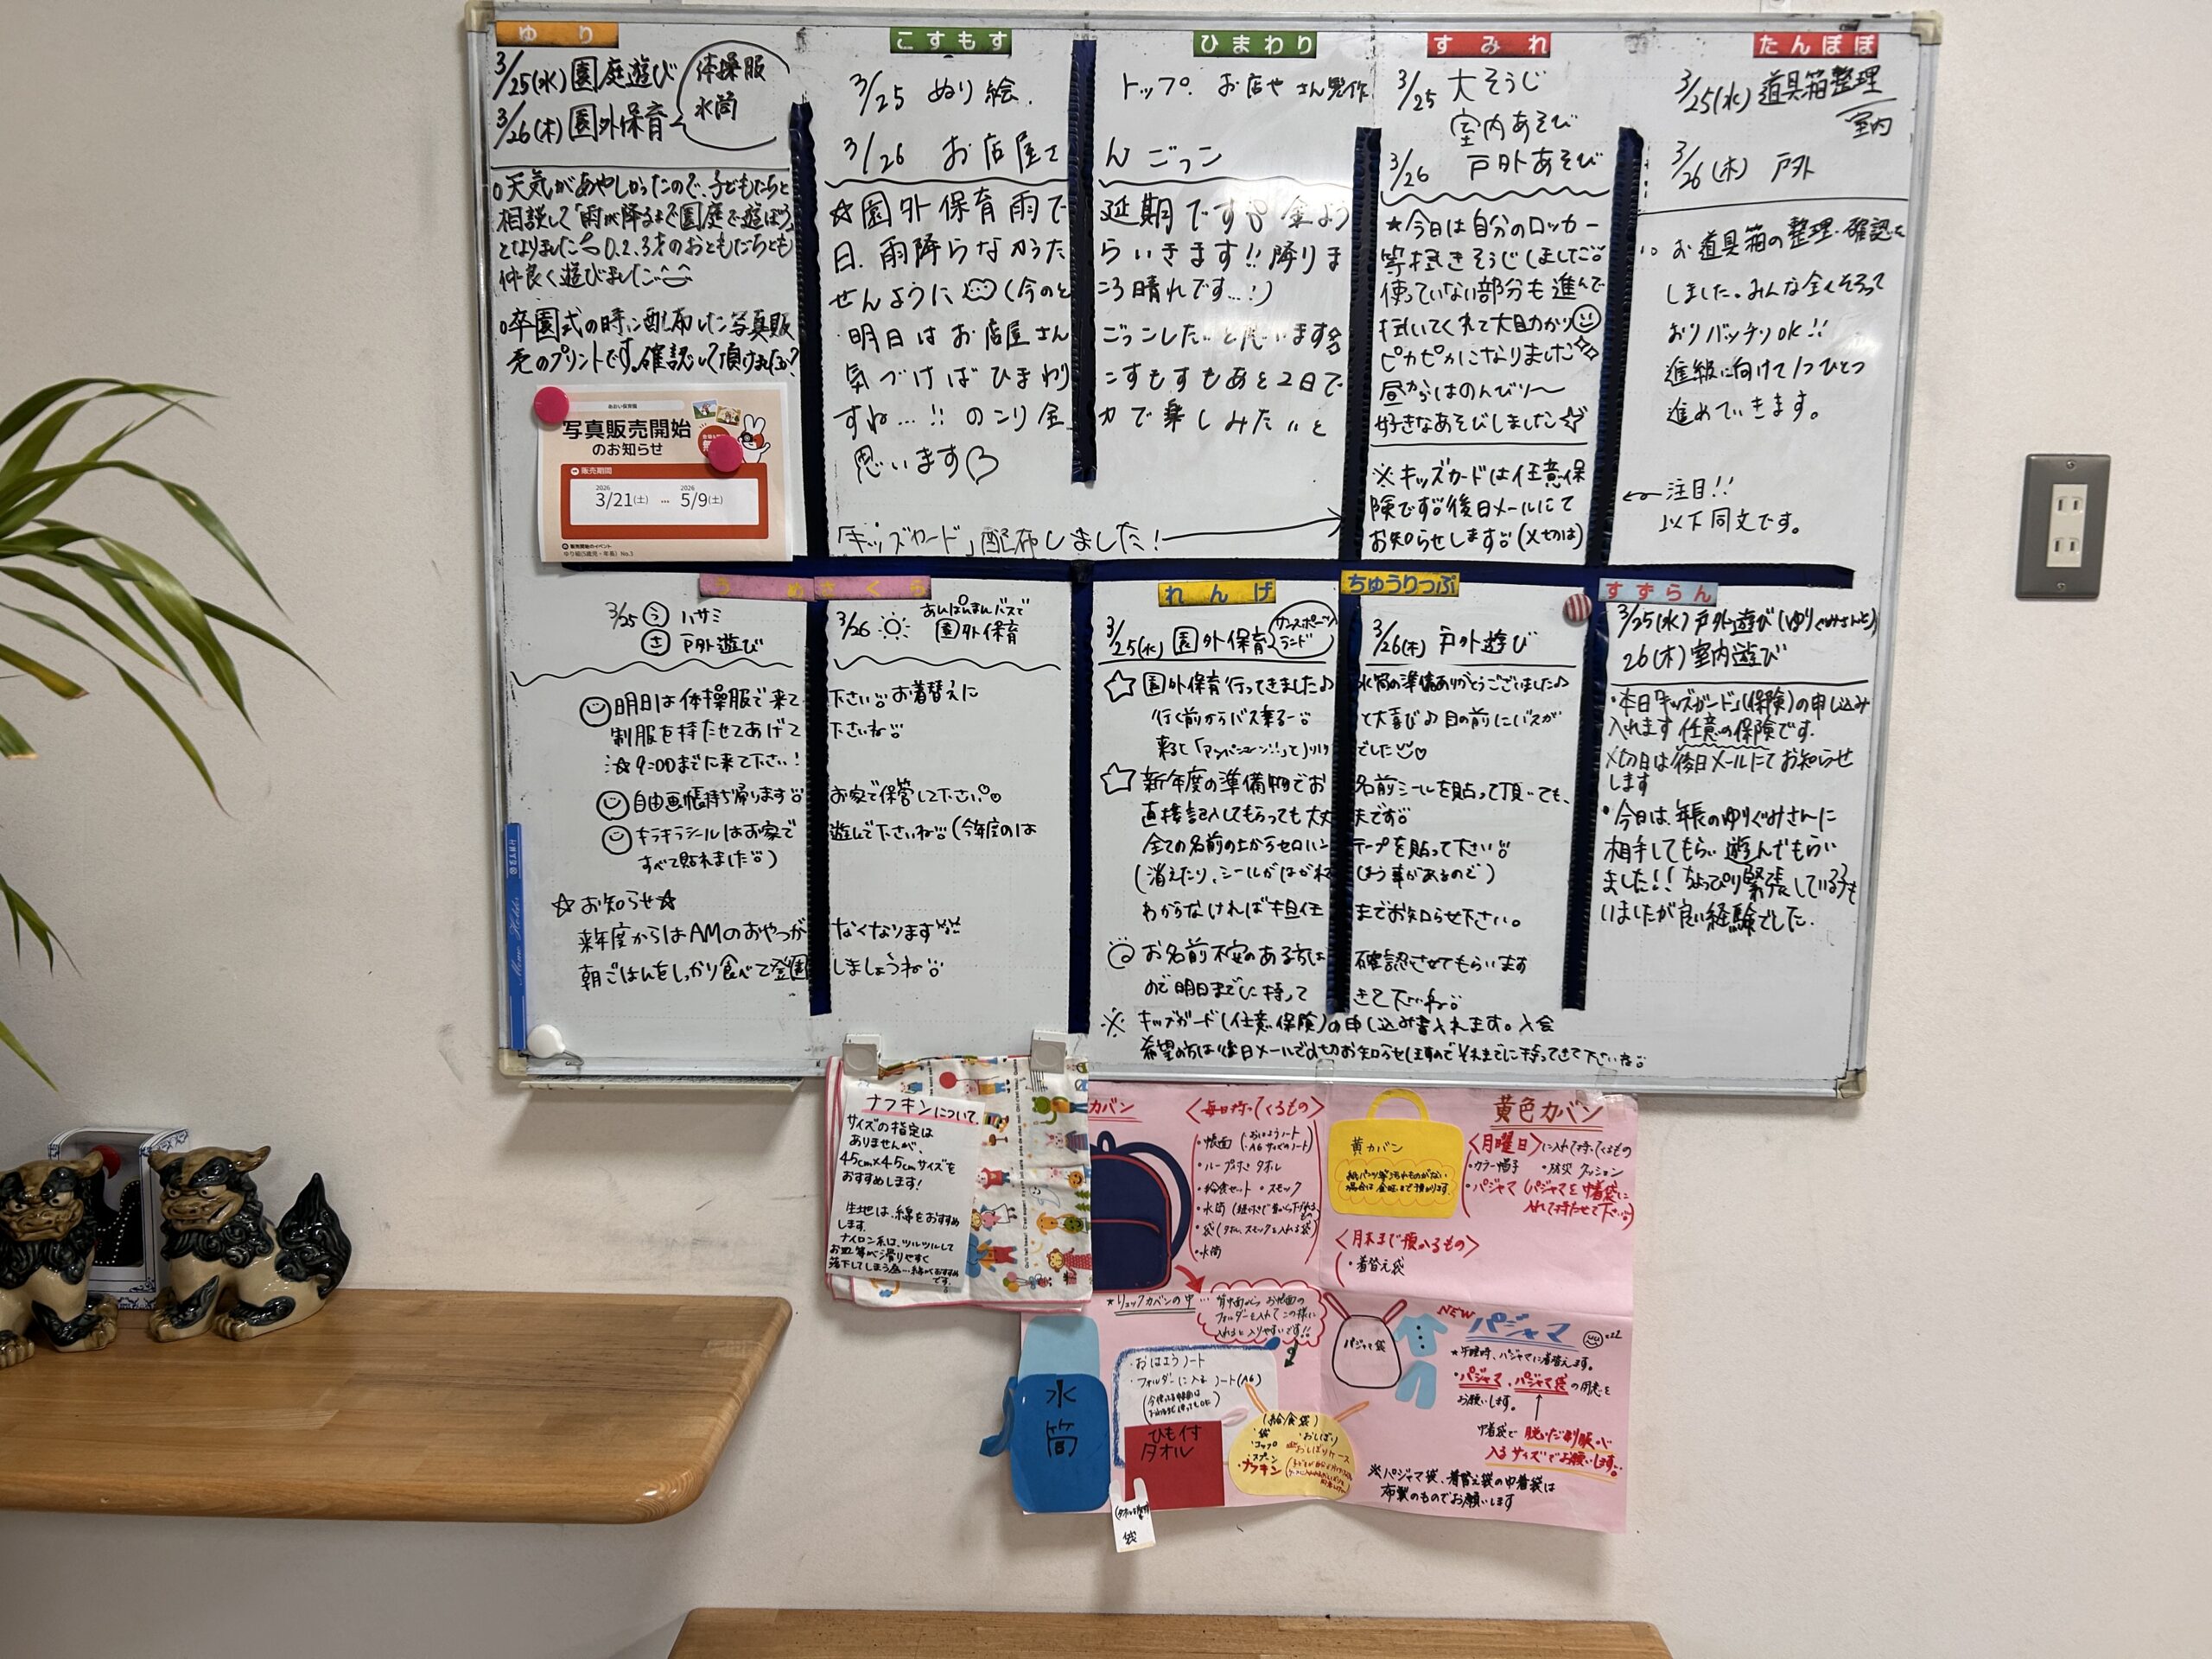 ゆり
3/25(水)園庭遊び
3/26(木)園外保育
体操服
水筒
○天気があやしかったので、子どもたちと
相談して「雨が降るまで園庭で遊ぼう」
となりました 0.2.3才のおともだちとも
仲良く遊びました
○卒園式の時に配布した写真販
売のプリントです。確認して頂けましたか?
あおい保育園
写真販売開始
のお知らせ
販売期間
2026
3/21(土)
…
2026
5/9(土)
販売開始のイベント
ゆり組(5歳児・年長) No.3
こすもす
ひまわり
3/25 ぬり絵.
トップ. お店やさん製作
3/26 お店屋さんごっこ
☆園外保育雨で延期です 金よう
日.雨降らなかったらいきます!!降りま
せんように (今のところ晴れです…!)
・明日はお店屋さんごっこしたいと思います
気づけばひまわりこすもすもあと2日で
すね…!! のこり全力で楽しみたいと
思います♡
「キッズガード」配布しました!
すみれ
3/25 大そうじ
室内あそび
3/26 戸外あそび
★今日は自分のロッカー
等拭きそうじしました
使っていない部分も進んで
拭いてくれて大助かり
ピカピカになりました
昼からはのんびり〜
好きなあそびしました☆
※キッズガードは任意保
険です 後日メールにて
お知らせします (〆切は)
たんぽぽ
3/25(水) 道具箱整理
室内
3/26(木) 戸外
お道具箱の整理・確認を
しました。みんな全てそろって
おりバッチリOK!!
進級に向けて1つひとつ
進めていきます。
← 注目!!
以下同文です。
うめ
さくら
3/25 う ハサミ
さ 戸外遊び
3/26
あんぱんまんバスで
園外保育
明日は体操服で来て下さい お着替えに
制服を持たせてあげて下さいね
☆9:00までに来て下さい!
自由画帳持ち帰ります お家で保管して下さい
キラキラシールはお家で遊んで下さいね (今年度のは
すべて貼れました)
☆お知らせ☆
来年度からはAMのおやつがなくなります
朝ごはんをしっかり食べて登園しましょうね
れんげ
ちゅうりっぷ
3/25(水) 園外保育
ランド
3/26(木) 戸外遊び
☆園外保育行ってきました♪水筒の準備ありがとうございました♪
行く前からバス乗るー と大喜び♪目の前にバスが
来ると「アンパンマーン!!」とノリノリでした♡
☆新年度の準備物でお名前シールを貼って頂いても、
直接記入してもらっても大丈夫です
全ての名前の上からセロハンテープを貼って下さい
(消えたり、シールがはがれてしまう事があるので)
わからなければ担任までお知らせ下さい。
お名前不安のある方は確認させてもらいます
ので明日までに持ってきて下さいね
※キッズガード(任意保険)の申し込み書入れます。入会
希望の方は後日メールで〆切お知らせしますのでそれまでに持ってきて下さいね
すずらん
3/25(水)戸外遊び(ゆりぐみさんと)
26(木)室内遊び
・本日「キッズガード」(保険)の申し込み
入れます 任意の保険です.
〆切日は後日メールにてお知らせ
します
・今日は、年長のゆりぐみさんに
相手してもらい遊んでもらい
ました!! ちょっぴり緊張している子も
いましたが良い経験でした.
ナフキンについて
サイズの指定は
ありませんが、
45cm×45cmサイズを
おすすめします!
生地は、綿をおすすめ
します。
ナイロン系は、ツルツルして
お皿等が滑りやすく
落下してしまう為…綿がおすすめ
です。
カバン
<毎日持ってくるもの>
・帳面(・おはようノート
・A6サイズのノート)
・ループ付きタオル
・給食セット ・スモック
・水筒
・袋(タオル、スモックを入れる袋)
・水筒
黄色カバン
黄カバン
<月曜日>に入れて持ってくるもの
・カラー帽子 ・防災クッション
・パジャマ(パジャマを巾着袋に
入れて持たせて下さい)
<月末まで預かるもの>
・着替え袋
★リュックカバンの中…
背中面からお帳面の
フォルダーを入れてこの様に
入れると入りやすいです!!
水筒
・おはようノート
・フォルダーに入るノート(A6)
ひも付
タオル
(給食袋)
・袋
・コップ
・スプーン
・ナフキン
・おしぼり
おしぼりケース
袋
パジャマ袋
NEW
パジャマ
★午睡時、パジャマに着替えます。
・パジャマ、パジャマ袋の用意を
お願いします。
巾着袋で脱いだ制服が
入るサイズでお願いします。
※パジャマ袋、着替え袋の巾着袋は
布製のものでお願いします